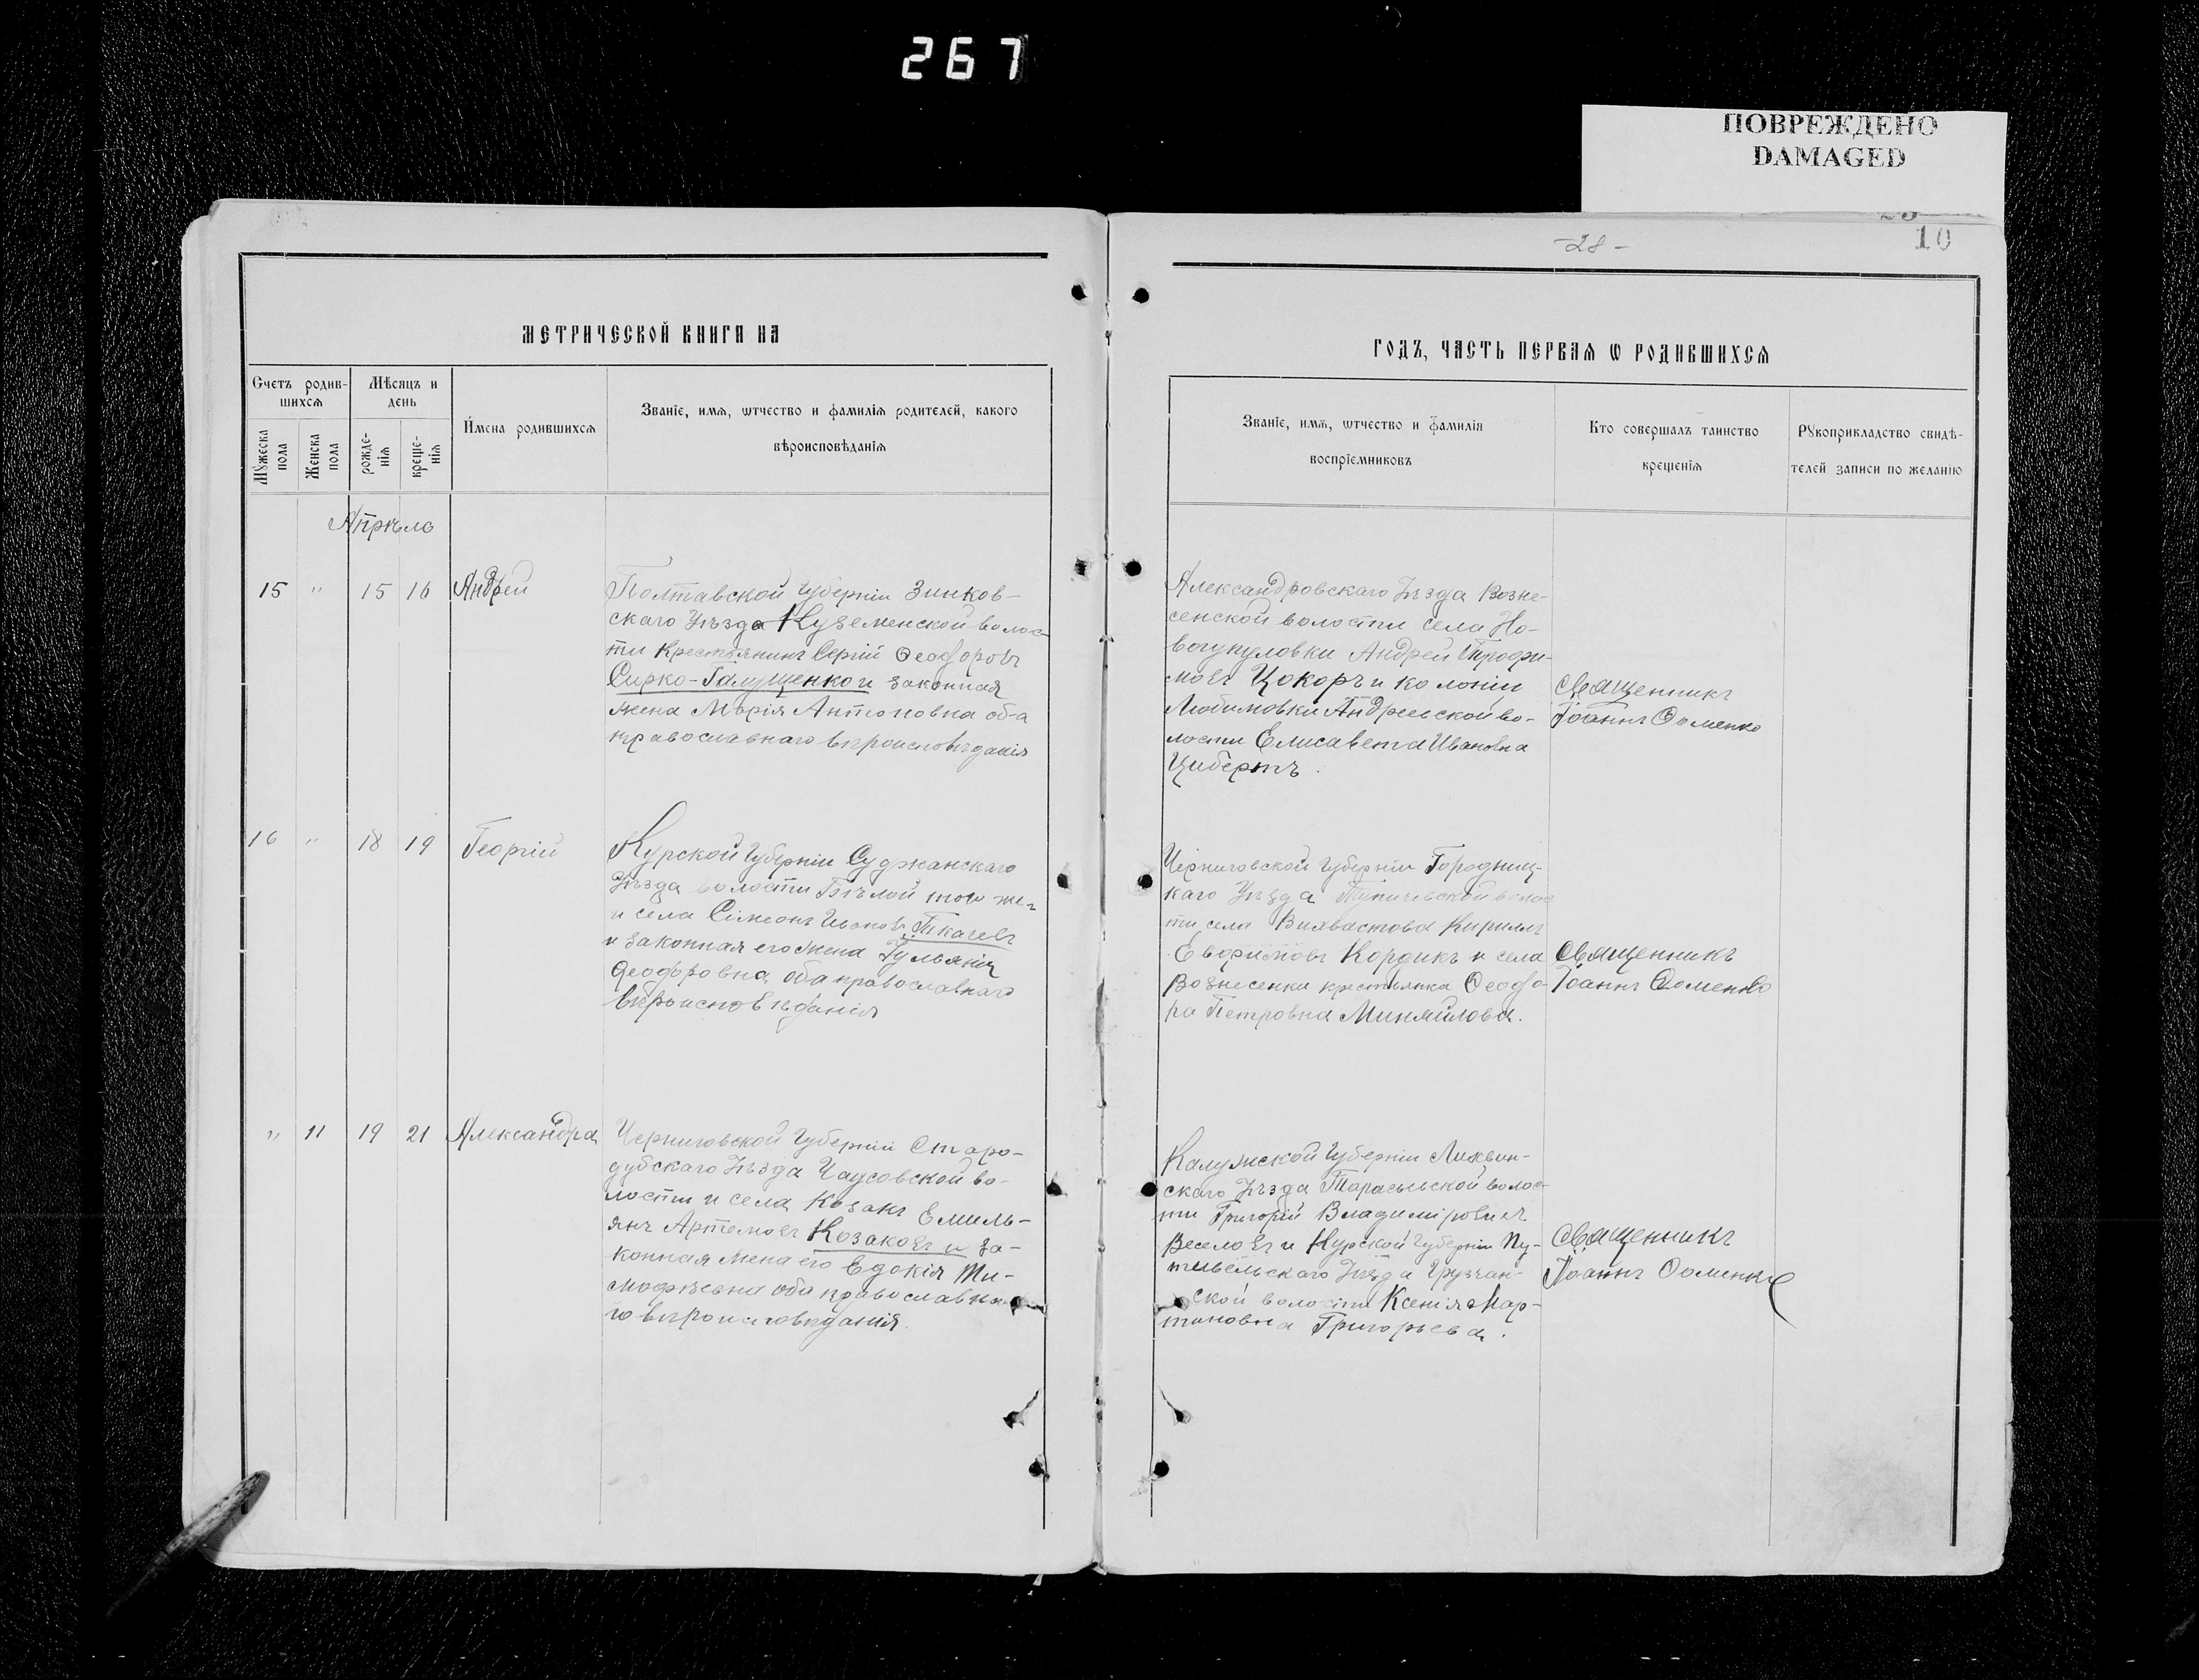 267
ПОВРЕЖДЕНО
DAMAGED
-28-
10
МЕТРИЧЕСКОЙ КНИГИ НА
Счетъ родив-
шихсѧ
Мѣсяцъ и
день
Мꙋжеска
пола
Женска
пола
рожде-
нїѧ
креще-
нїѧ
Имена родившихсѧ
Званїе, имѧ, ѿтчество и фамилїѧ родителей, какого
вѣроисповѣданїѧ
Апрѣль
15 " 15 16 Андрей
Полтавской Губерніи Зинков-
скаго Уѣзда Куземенской волос-
ти крестьянинъ Сергій Ѳеодоровъ
Сирко-Галущенко и законная
жена Марія Антоновна оба
православнаго вѣроисповѣданія
16 " 18 19 Георгій
Курской Губерніи Суджанскаго
Уѣзда волости Бѣлой той же
и села Симеонъ Ивановъ Ткачевъ
и законная его жена Гульянія
Ѳеодоровна, оба православнаго
вѣроисповѣданія
" 11 19 21 Александра
Черниговской Губерніи Старо-
дубскаго Уѣзда Чаусовской во-
лости и села Козакъ Емиль-
янъ Артемовъ Козаковъ и за-
конная жена его Евдокія Ти-
мофѣевна оба православна-
го вѣроисповѣданія.
ГОДЪ, ЧАСТЬ ПЕРВАѦ Ѡ РОДИВШИХСѦ
Званїе, имѧ, ѿтчество и фамилїѧ
воспрїемниковъ
Кто совершалъ таинство
крещенїѧ
Рꙋкоприкладство свидѣ-
телей записи по желанїю
Александровскаго Уѣзда Возне-
сенской волости села Но-
вогупуловки Андрей Трофи-
мовъ Цокоръ и колоніи
Любимовки Андреевской во-
лости Елисавета Ивановна
Цибертъ.
Священникъ
Іоаннъ Ѳоменко
Черниговской Губерніи Городниц-
каго Уѣзда Тупичевской волос
ти села Вихвастова Кириллъ
Евфимовъ Кордикъ и села
Вознесенки крестьянка Ѳеодо-
ра Петровна Миняйлова.
Священникъ
Іоаннъ Ѳоменко
Калужской Губерніи Лихвин-
скаго Уѣзда волос-
ти Григорій Владиміровичъ
Веселовъ и Курской Губерніи Пу-
тивельскаго Уѣзда Грузчан-
ской волости Ксенія Мар-
тиновна Григорьева.
Священникъ
Іоаннъ Ѳоменко